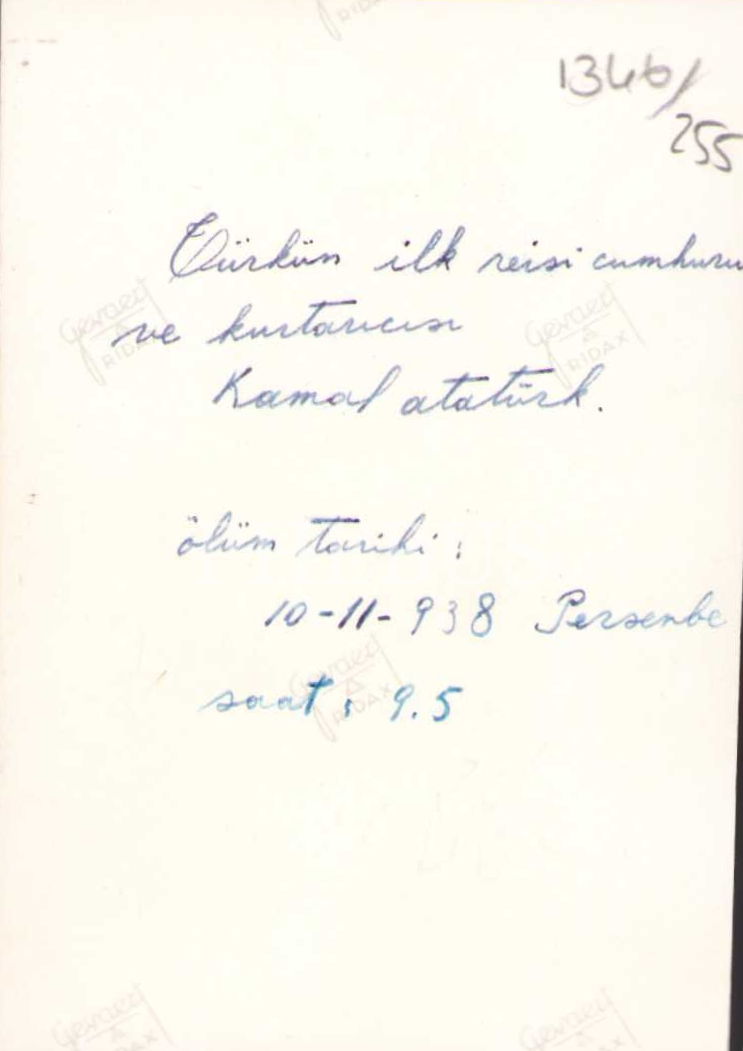 1346/
255
Türkün ilk reisi cumhuru
ve kurtarıcısı
Kamal atatürk.
ölüm tarihi:
10-11-938 Perşenbe
saat: 9.5
Gevaert
RIDAX
Gevaert
RIDAX
Gevaert
RIDAX
Gevaert
RIDAX
Gevaert